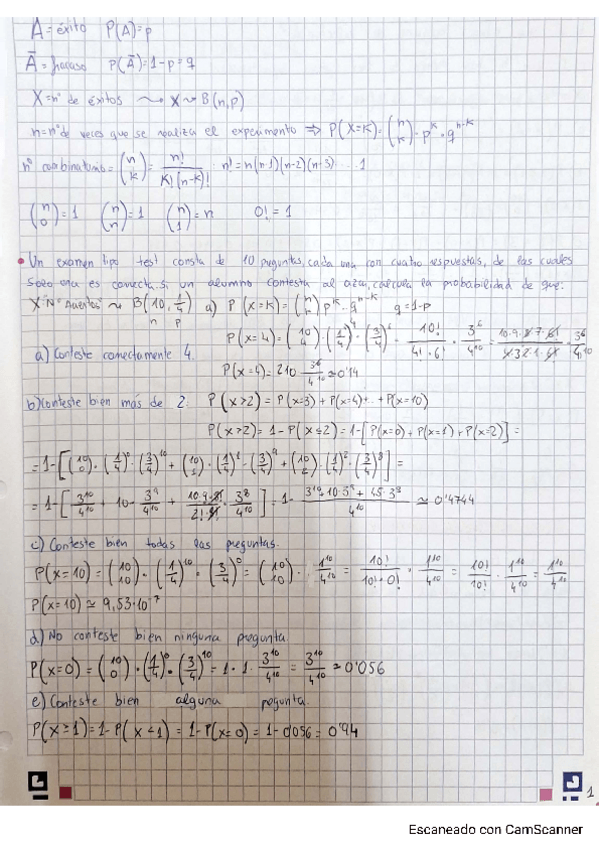 A = éxito P(A)=p
Ā = fracaso P(Ā)=1-p=q
X=nº de éxitos ⇝ X ~ B(n,p)
n=nº de veces que se realiza el experimento ⇒ P(X=K)=(n K)·p^K·q^(n-K)
nº combinatorio=(n K)= n!/K!(n-K)! · n!=n(n-1)(n-2)(n-3)...1
(n 0)=1 (n n)=1 (n 1)=n 0!=1
• Un examen tipo test consta de 10 preguntas, cada una con cuatro respuestas, de las cuales
solo una es correcta. Si un alumno contesta al azar, calcula la probabilidad de que:
X="Nº Aciertos" ~ B(10, 1/4) a) P(X=K)=(n K) p^K·q^(n-K) q=1-p
n p
P(X=4)=(10 4)·(1/4)^4·(3/4)^6= 10!/4!·6! · 3^6/4^10 = 10·9·8·7·6!/4·3·2·1·6! · 3^6/4^10
a) Conteste correctamente 4.
P(X=4)=210·3^6/4^10≃0'14
b) Conteste bien más de 2: P(X>2)=P(X=3)+P(X=4)+..+P(X=10)
P(X>2)=1-P(X≤2)=1-[P(X=0)+P(X=1)+P(X=2)]=
=1-[(10 0)·(1/4)^0·(3/4)^10+(10 1)·(1/4)^1·(3/4)^9+(10 2)·(1/4)^2·(3/4)^8]=
=1-[3^10/4^10+10·3^9/4^10+10·9·8!/2!·8!·3^8/4^10]=1- 3^10+10·3^9+45·3^8/4^10 ≃0'4744
c) Conteste bien todas las preguntas.
P(X=10)=(10 10)·(1/4)^10·(3/4)^0=(10 10)·1^10/4^10=10!/10!·0!·1^10/4^10=10!/10!·1^10/4^10=1^10/4^10
P(X=10)≃9,53·10^-7
d) No conteste bien ninguna pregunta.
P(X=0)=(10 0)·(1/4)^0·(3/4)^10=1·1·3^10/4^10=3^10/4^10≃0'056
e) Conteste bien alguna pegunta.
P(X≥1)=1-P(X<1)=1-P(X=0)=1-0'056=0'94
1
Escaneado con CamScanner